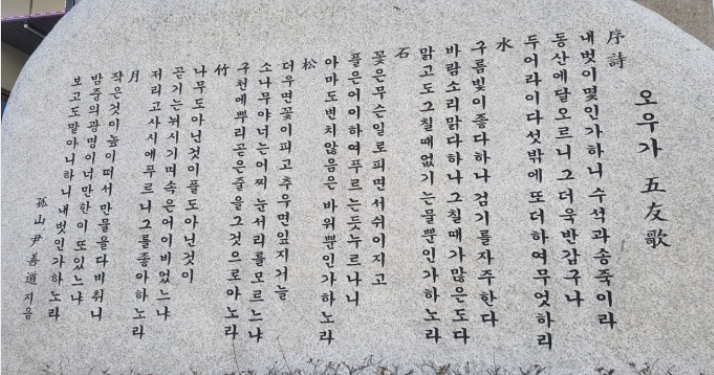 오우가 五友歌
序詩
내벗이몇인가하니 수석과송죽이라
동산에달오르니 그더욱반갑구나
두어라이다섯밖에 또더하여무엇하리
水
구름빛이좋다하나 검기를자주한다
바람소리맑다하나 그칠때가많은도다
맑고도그칠때없기는물뿐인가하노라
石
꽃은무슨일로피면서쉬이지고
풀은어이하여푸르는듯누르나니
아마도변치않음은 바위뿐인가하노라
松
더우면꽃이피고추우면잎지거늘
소나무야너는어찌 눈서리를모르느냐
구천에뿌리곧은줄을그것으로아노라
竹
나무도아닌것이풀도아닌것이
곧기는뉘시기며속은어이비었느냐
저리고사시에푸르니그를좋아하노라
月
작은것이높이떠서만물을다비취니
밤중의광명이너만한이또있느냐
보고도말아니하니내벗인가하노라
孤山尹善道지음